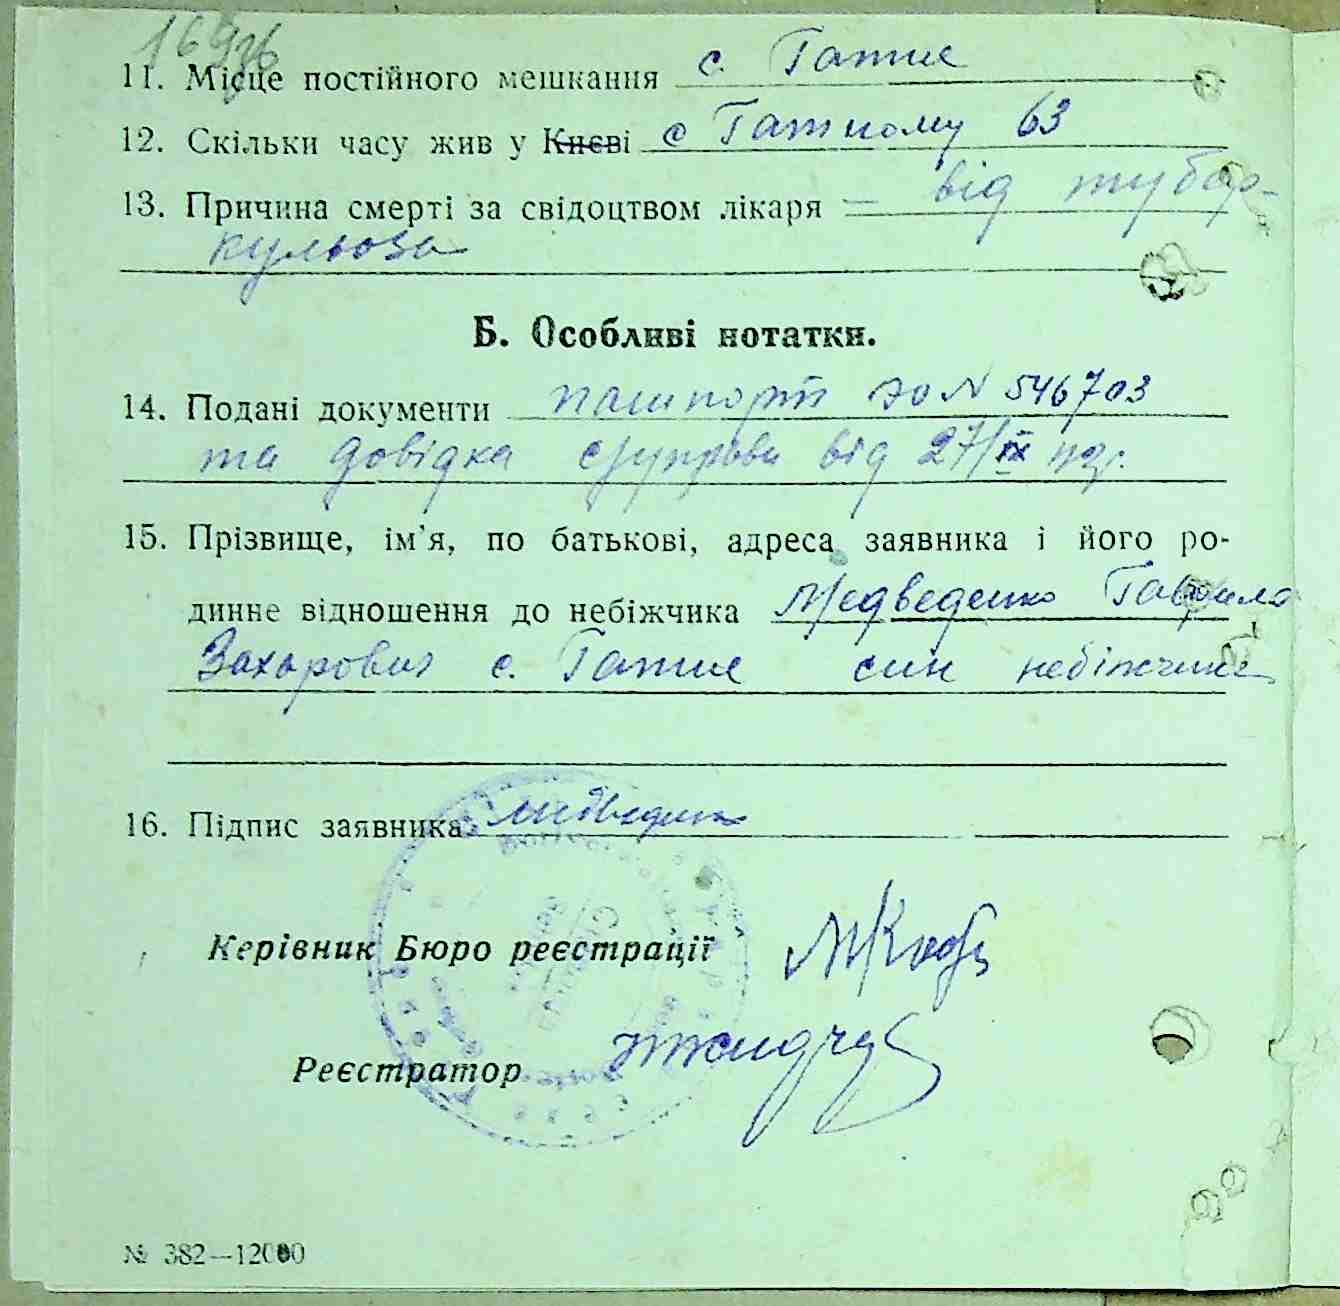 11. Місце постійного мешкання с. Гатне
12. Скільки часу жив у Києві с Гатному 63
13. Причина смерті за свідоцтвом лікаря — від тубер-
кульоза
Б. Особливі нотатки.
14. Подані документи пашпорт № 546703
та довідка від 27/IX
15. Прізвище, ім'я, по батькові, адреса заявника і його ро-
динне відношення до небіжчика Медведенко Гаврило
Захарович с. Гатне син небіжчика
16. Підпис заявника
Керівник Бюро реєстрації
Реєстратор
№ 382—12000